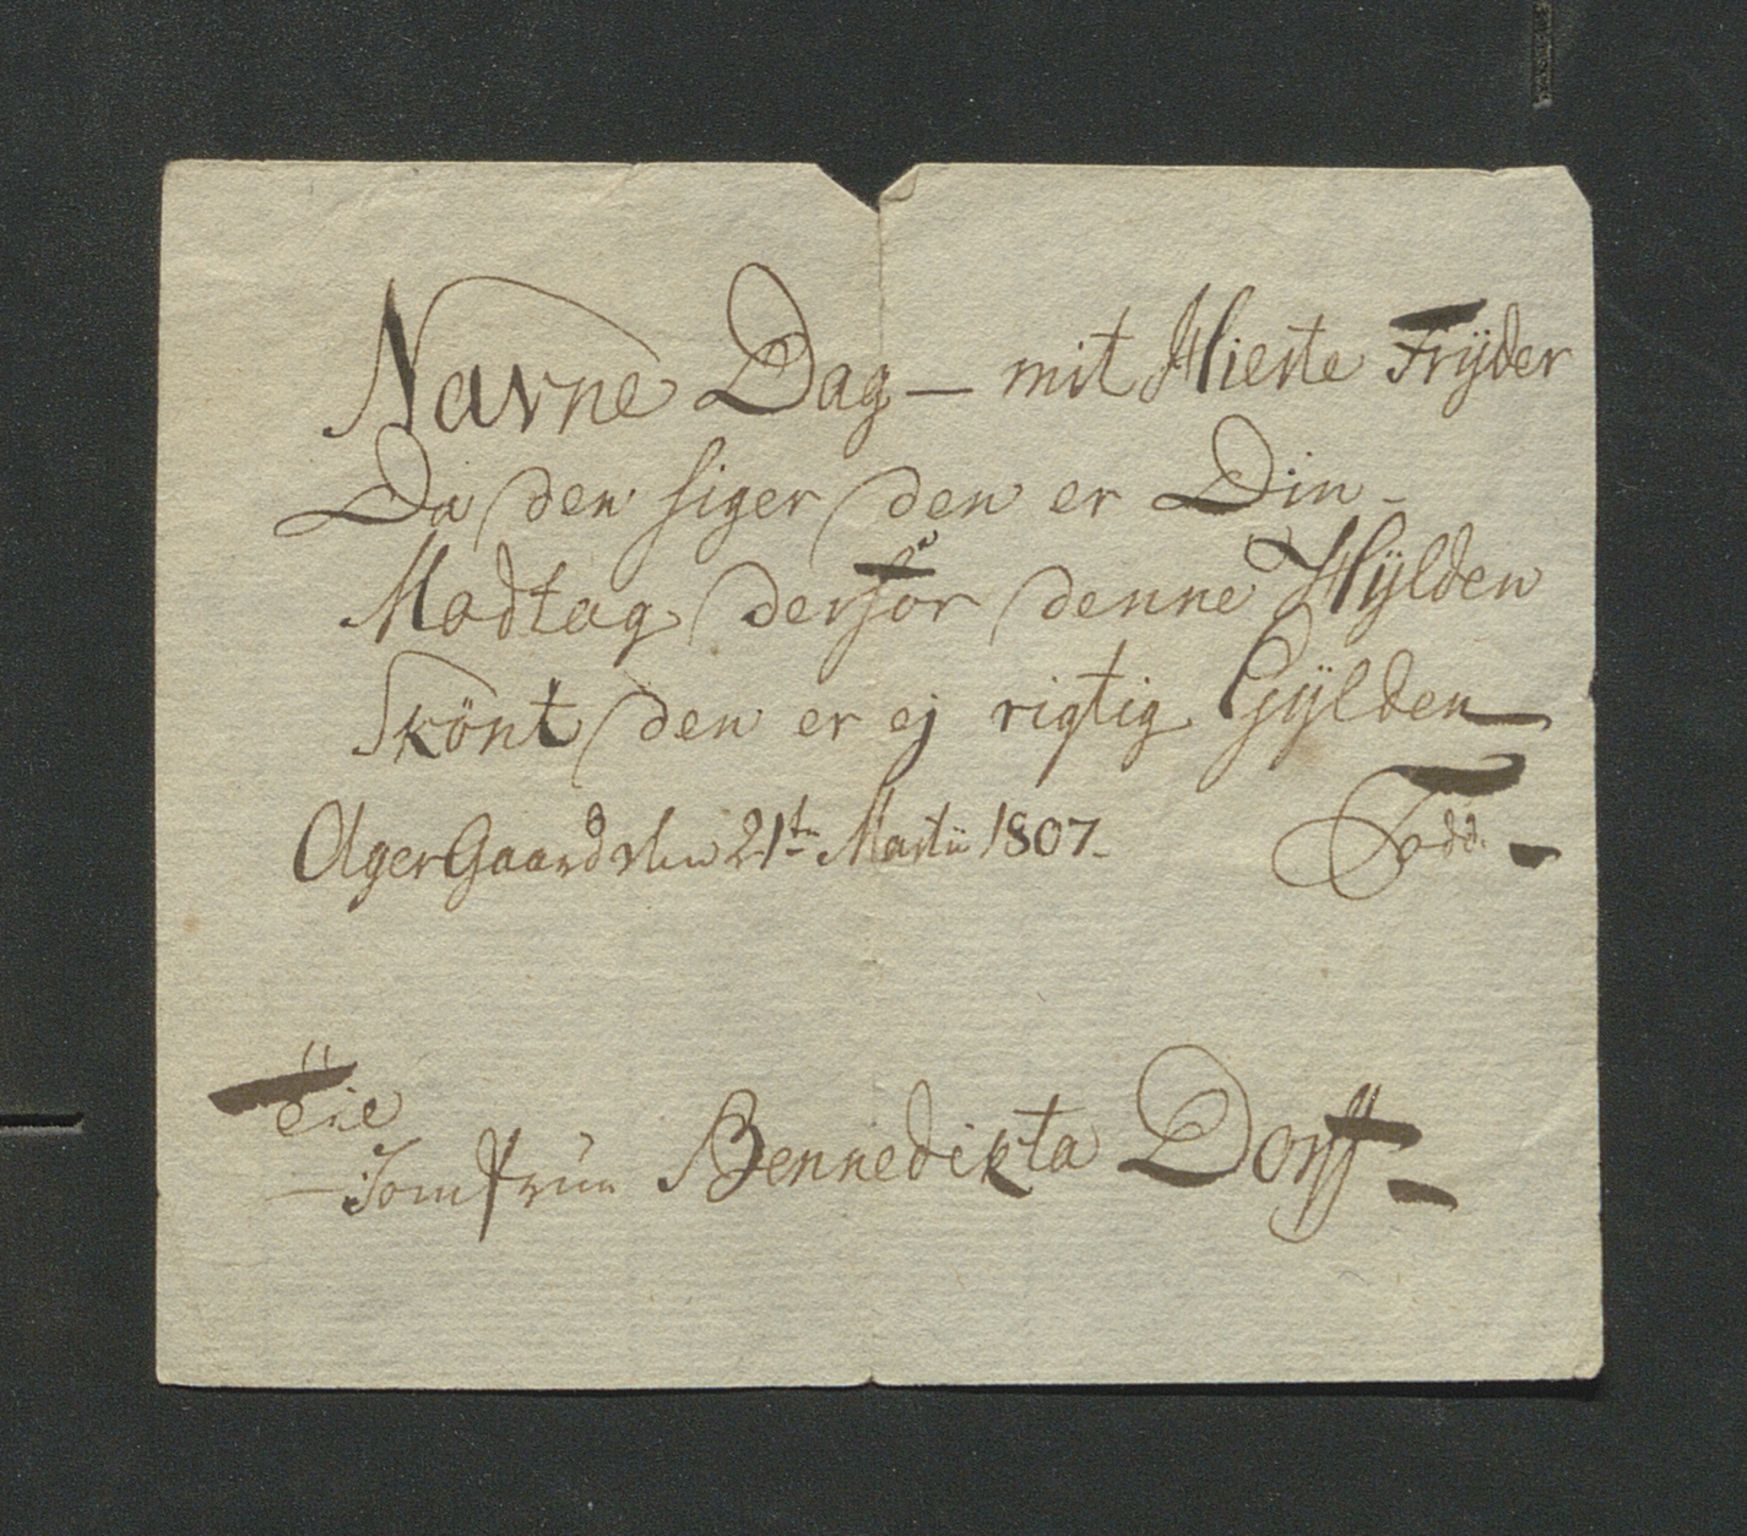 Navne Dag – mit Hierte Frÿder
Da den siger den er Din –
Modtag derfor denne Hÿlden
Skönt den er ej rigtig Gÿlden
AgerGaard den 21te Martii 1807 –
Todd. –
Til
– Jomfrue Bennedikta Dorff –